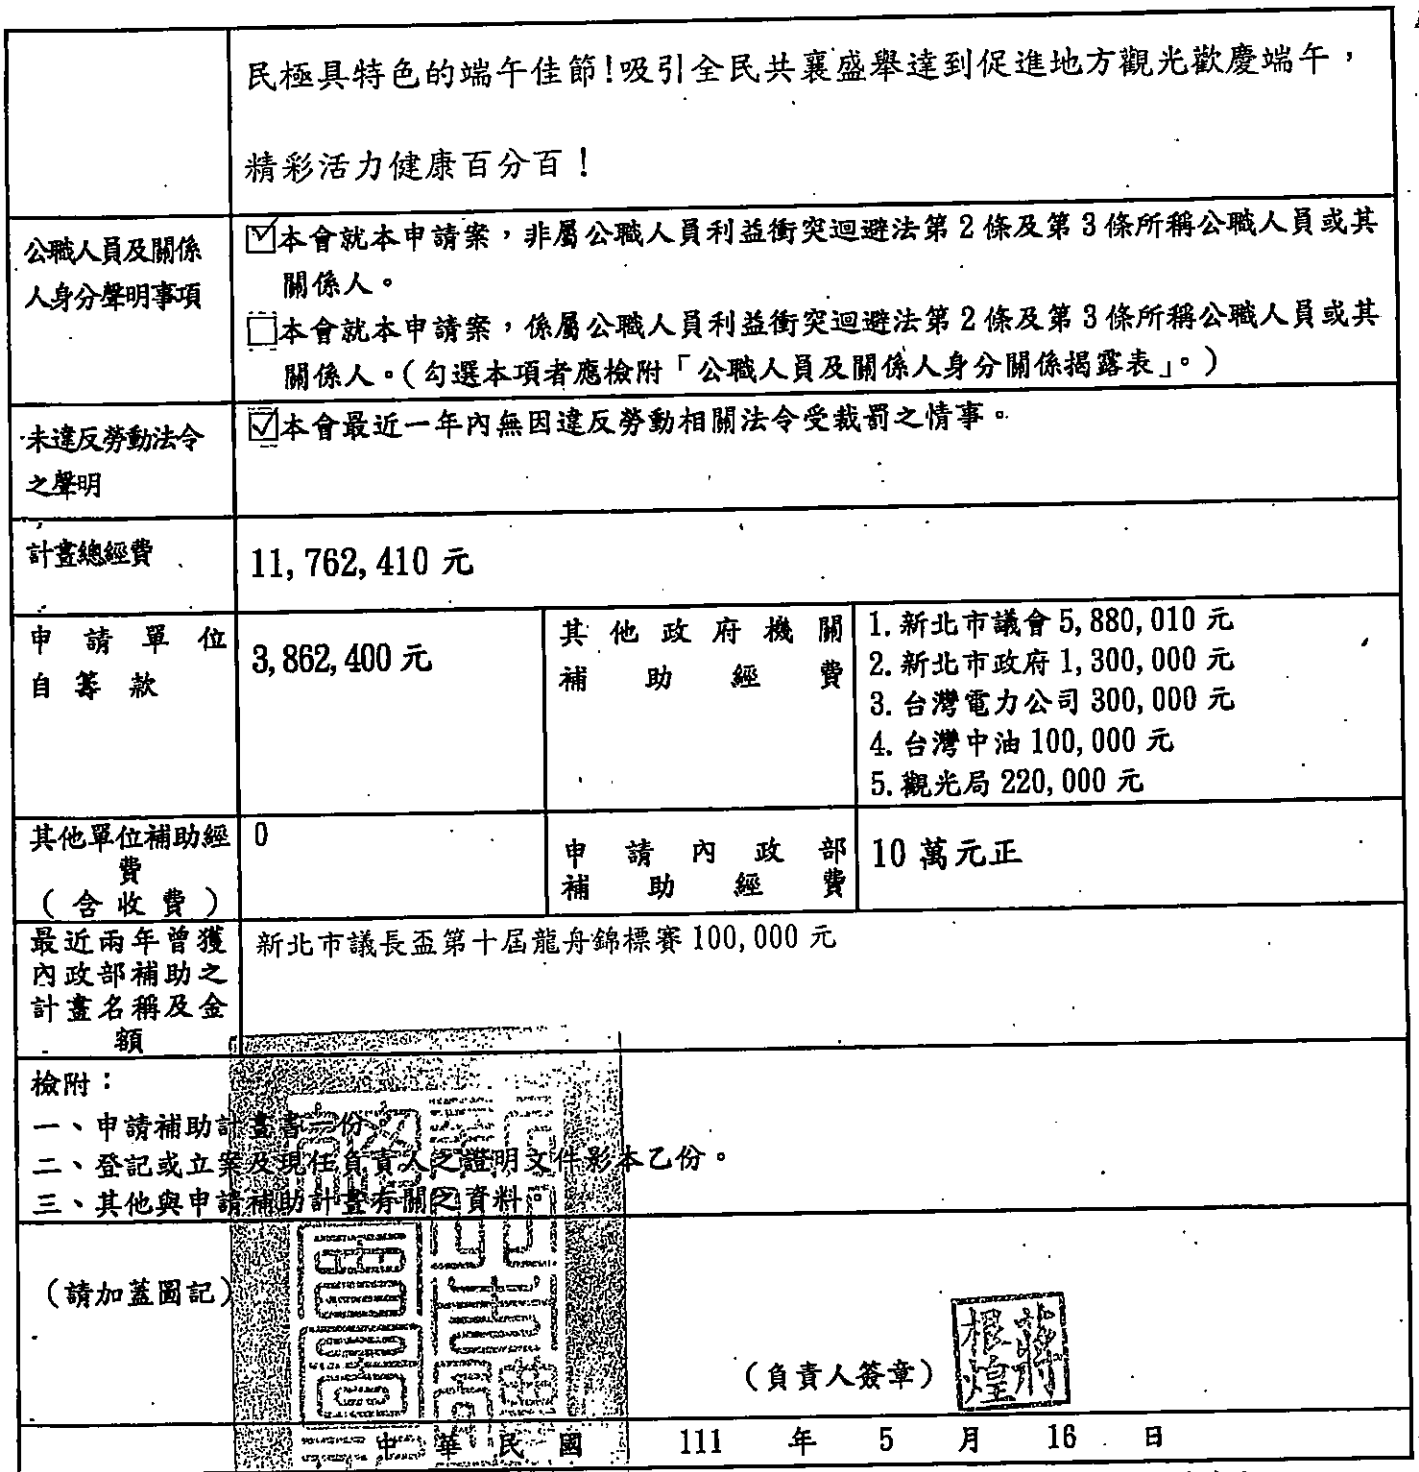 民極具特色的端午佳節!吸引全民共襄盛舉達到促進地方觀光歡慶端午，
精彩活力健康百分百！
公職人員及關係
人身分聲明事項
☑本會就本申請案，非屬公職人員利益衝突迴避法第2條及第3條所稱公職人員或其
關係人。
□本會就本申請案，係屬公職人員利益衝突迴避法第2條及第3條所稱公職人員或其
關係人。(勾選本項者應檢附「公職人員及關係人身分關係揭露表」。)
未違反勞動法令
之聲明
☑本會最近一年內無因違反勞動相關法令受裁罰之情事。
計畫總經費
11,762,410 元
申請單位
自籌款
3,862,400 元
其他政府機關
補助經費
1. 新北市議會 5,880,010 元
2. 新北市政府 1,300,000 元
3. 台灣電力公司 300,000 元
4. 台灣中油 100,000 元
5. 觀光局 220,000 元
其他單位補助經
費
(含收費)
0
申請內政部
補助經費
10 萬元正
最近兩年曾獲
內政部補助之
計畫名稱及金
額
新北市議長盃第十屆龍舟錦標賽 100,000 元
檢附：
一、申請補助計畫書一份。
二、登記或立案及現任負責人之證明文件影本乙份。
三、其他與申請補助計畫有關之資料。
(請加蓋圖記)
(負責人簽章)
中華民國 111 年 5 月 16 日